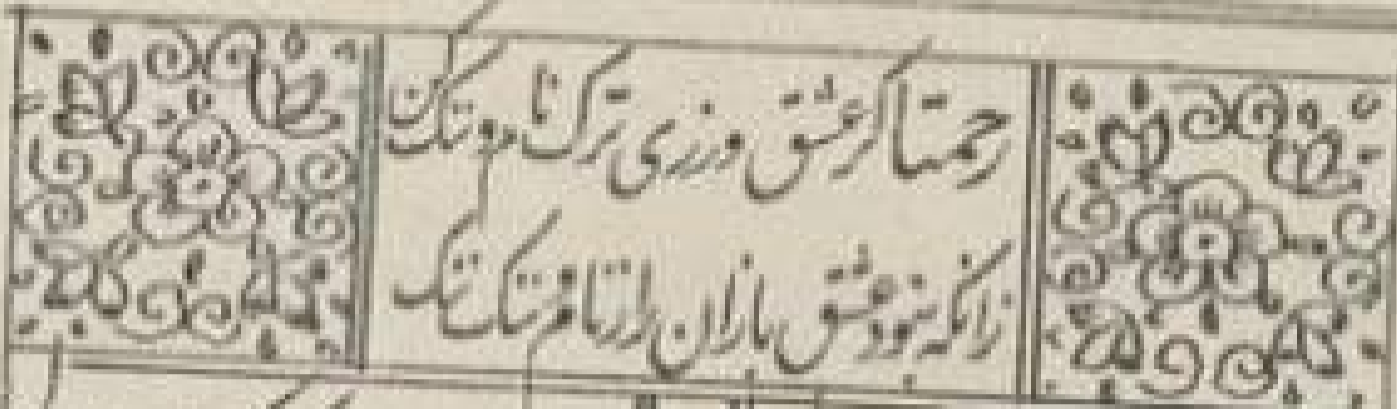 رحمتا گر عشق ورزی ترک نام و ننگ کن
زانکه نبود عشق بازان را ز نام و ننگ ننگ